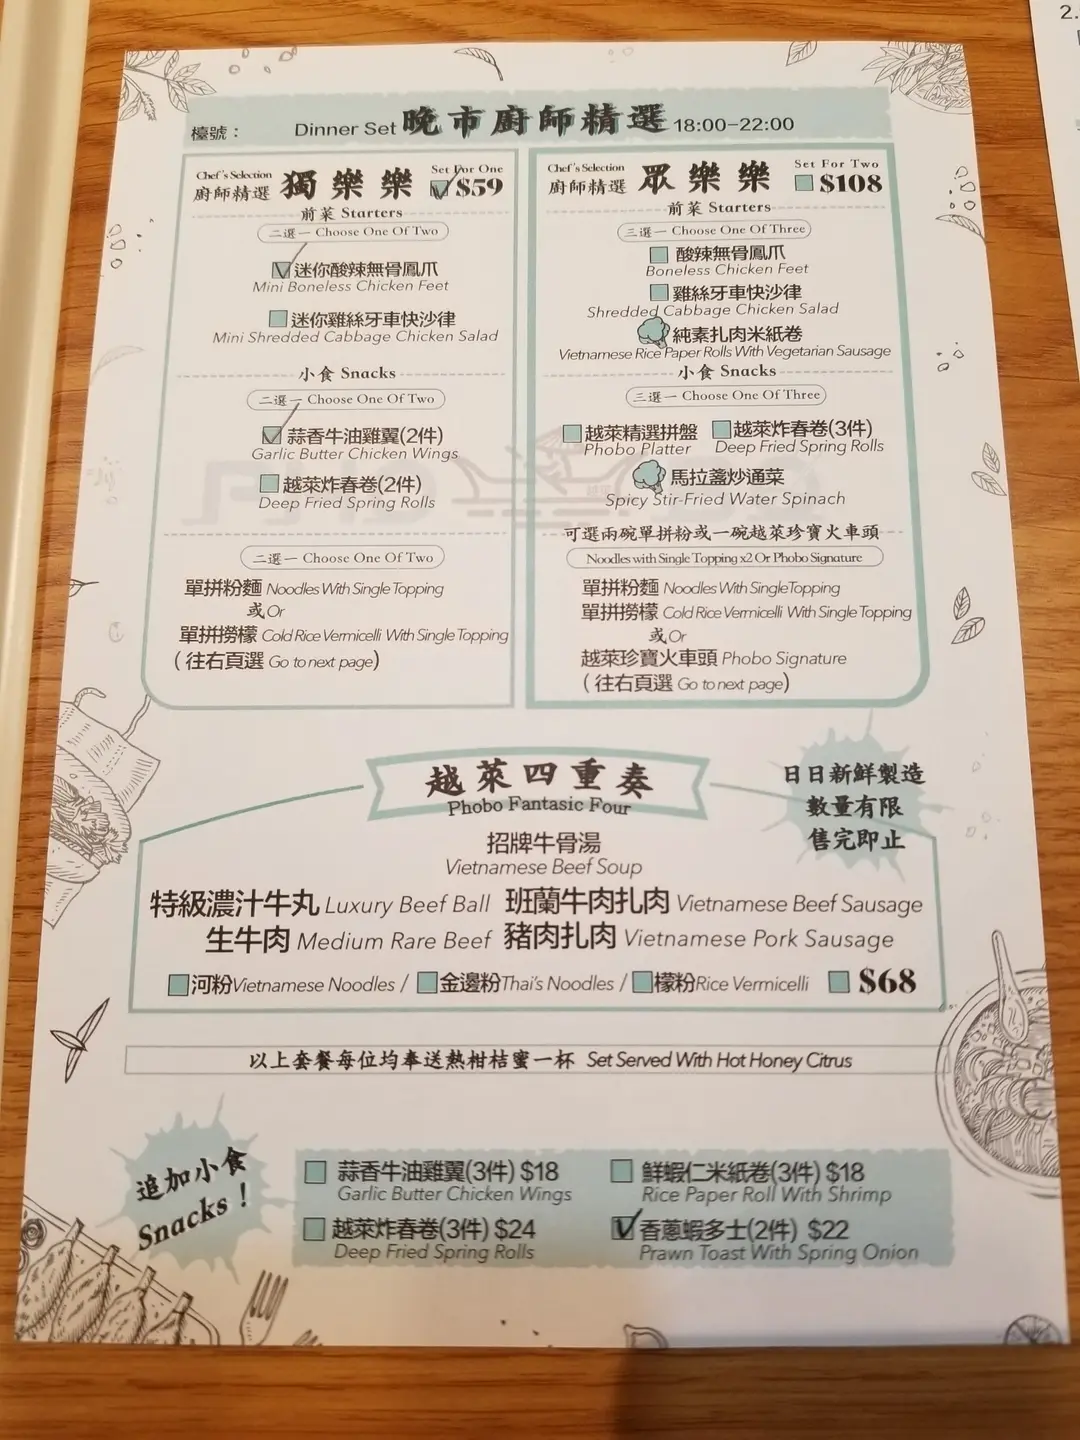 檯號：
Dinner Set 晚市廚師精選 18:00-22:00
Chef's Selection
廚師精選 獨樂樂
Set For One
$59
前菜 Starters
二選一 Choose One Of Two
迷你酸辣無骨鳳爪
Mini Boneless Chicken Feet
迷你雞絲牙車快沙律
Mini Shredded Cabbage Chicken Salad
小食 Snacks
二選一 Choose One Of Two
蒜香牛油雞翼(2件)
Garlic Butter Chicken Wings
越萊炸春卷(2件)
Deep Fried Spring Rolls
二選一 Choose One Of Two
單拼粉麵 Noodles With Single Topping
或Or
單拼撈檬 Cold Rice Vermicelli With Single Topping
(往右頁選 Go to next page)
Chef's Selection
廚師精選 眾樂樂
Set For Two
$108
前菜 Starters
三選一 Choose One Of Three
酸辣無骨鳳爪
Boneless Chicken Feet
雞絲牙車快沙律
Shredded Cabbage Chicken Salad
純素扎肉米紙卷
Vietnamese Rice Paper Rolls With Vegetarian Sausage
小食 Snacks
三選一 Choose One Of Three
越萊精選拼盤
Phobo Platter
越萊炸春卷(3件)
Deep Fried Spring Rolls
馬拉盞炒通菜
Spicy Stir-Fried Water Spinach
可選兩碗單拼粉或一碗越萊珍寶火車頭
Noodles with Single Topping x2 Or Phobo Signature
單拼粉麵 Noodles With SingleTopping
單拼撈檬 Cold Rice Vermicelli With Single Topping
或Or
越萊珍寶火車頭 Phobo Signature
(往右頁選 Go to next page)
越萊四重奏
Phobo Fantasic Four
日日新鮮製造
數量有限
售完即止
招牌牛骨湯
Vietnamese Beef Soup
特級濃汁牛丸 Luxury Beef Ball 班蘭牛肉扎肉 Vietnamese Beef Sausage
生牛肉 Medium Rare Beef 豬肉扎肉 Vietnamese Pork Sausage
河粉Vietnamese Noodles / 金邊粉Thai's Noodles / 檬粉Rice Vermicelli $68
以上套餐每位均奉送熱柑桔蜜一杯 Set Served With Hot Honey Citrus
追加小食
Snacks！
蒜香牛油雞翼(3件) $18
Garlic Butter Chicken Wings
鮮蝦仁米紙卷(3件) $18
Rice Paper Roll With Shrimp
越萊炸春卷(3件) $24
Deep Fried Spring Rolls
香蔥蝦多士(2件) $22
Prawn Toast With Spring Onion
2.